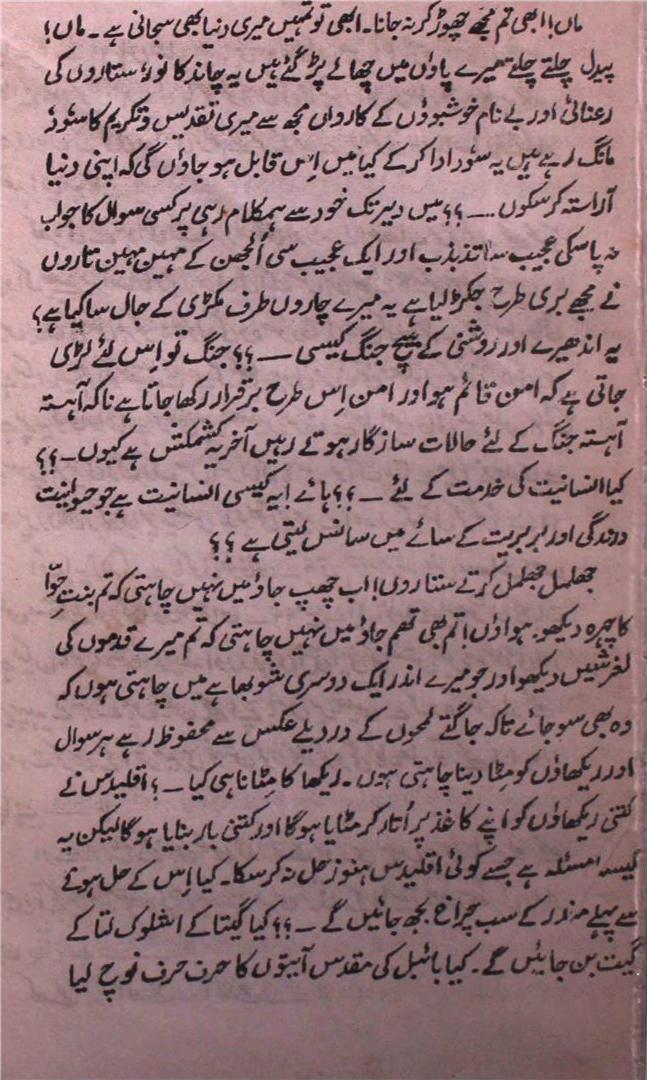 ماں! ابھی تم مجھے چھوڑ کر نہ جانا۔ ابھی تو تمہیں میری دنیا بھی سجانی ہے۔ ماں!
پیدل چلتے چلتے میرے پاؤں میں چھالے پڑ گئے ہیں یہ چاند کا نور، ستاروں کی
رعنائی اور بے نام خوشبوؤں کے کارواں مجھ سے میری تقدیس و تکریم کا سُود
مانگ رہے ہیں یہ سُود ادا کر کے کیا میں اِس قابل ہو جاؤں گی کہ اپنی دنیا
آراستہ کر سکوں ــــ؟؟ میں دیر تک خود سے ہمکلام رہی پر کسی سوال کا جواب
نہ پا سکی عجیب سا تذبذب اور ایک عجیب سی اُلجھن کے مہین مہین تاروں
نے مجھے بری طرح جکڑ لیا ہے یہ میرے چاروں طرف مکڑی کے جال سا کیا ہے؟
یہ اندھیرے اور روشنی کے بیچ جنگ کیسی ــــ؟؟ جنگ تو اِس لئے لڑی
جاتی ہے کہ امن قائم ہو اور امن اِس طرح برقرار رکھا جاتا ہے تاکہ آہستہ
آہستہ جنگ کے لئے حالات سازگار ہوتے رہیں آخر یہ کشمکش ہے کیوں ــ؟؟
کیا انسانیت کی خدمت کے لئے ــ؟؟ ہائے! یہ کیسی انسانیت ہے جو حیوانیت
درندگی اور بربریت کے سائے میں سانس لیتی ہے؟؟
جھلمل جھلمل کرتے ستاروں! اب چھپ جاؤ میں نہیں چاہتی کہ تم بنتِ حوّا
کا چہرہ دیکھو۔ ہواؤں! تم بھی تھم جاؤ میں نہیں چاہتی کہ تم میرے قدموں کی
لغزشیں دیکھو اور جو میرے اندر ایک دوسری شوبھا ہے میں چاہتی ہوں کہ
وہ بھی سو جائے تاکہ جاگتے لمحوں کے دردیلے عکس سے محفوظ رہے ہر سوال
اور ریکھاؤں کو مِٹا دینا چاہتی ہوں۔ ریکھا کا مِٹانا ہی کیا ــ؟ اقلیدس نے
کتنی ریکھاؤں کو اپنے کاغذ پر اُتار کر مٹایا ہوگا اور کتنی بار بنایا ہوگا لیکن یہ
کیسا مسئلہ ہے جسے کوئی اقلیدس ہنوز حل نہ کر سکا۔ کیا اِس کے حل ہونے
سے پہلے مندر کے سب چراغ بجھ جائیں گے ــ؟؟ کیا گیتا کے اشلوک لتا کے
گیت بن جائیں گے۔ کیا بائبل کی مقدس آیتوں کا حرف حرف نوچ لیا